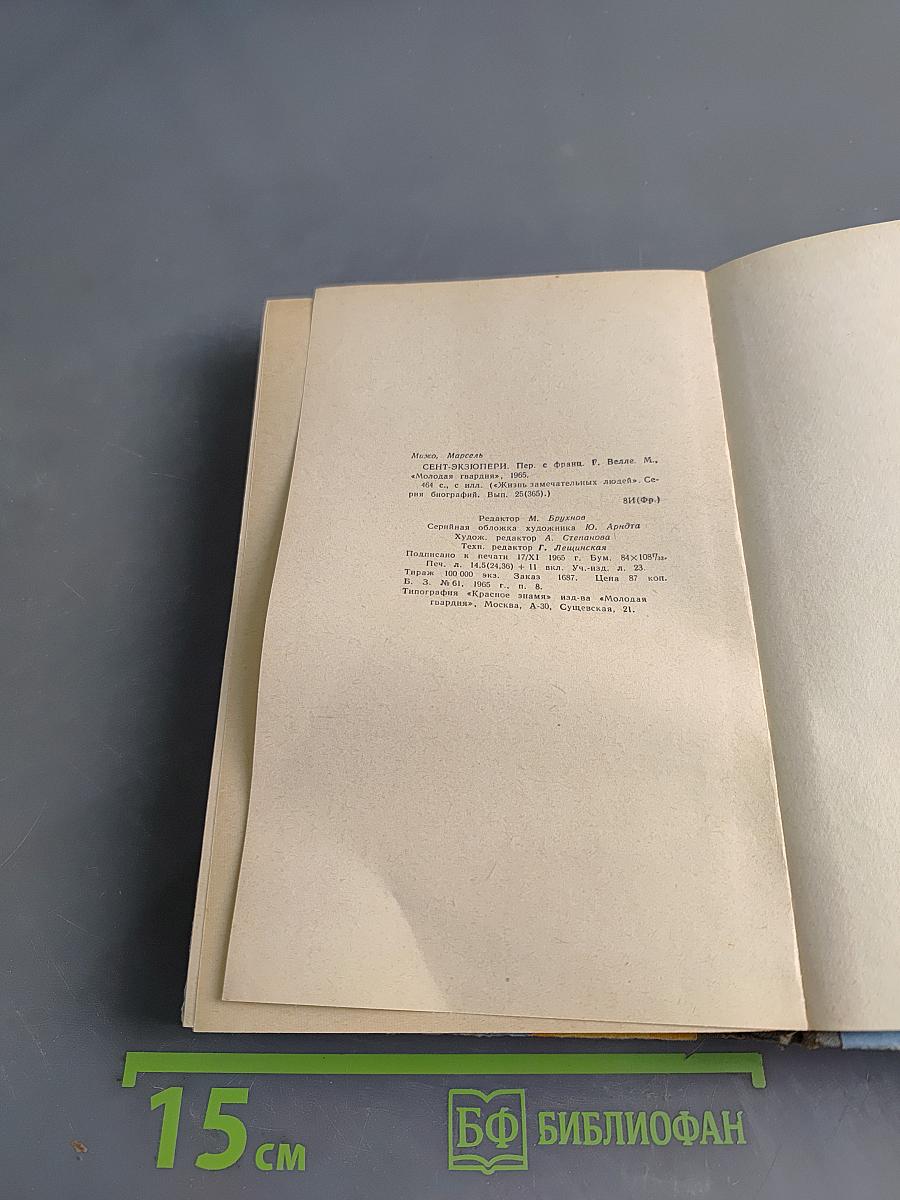 Мижо, Марсель
СЕНТ-ЭКЗЮПЕРИ. Пер. с франц. Г. Велле. М.,
«Молодая гвардия», 1965.
464 с., с илл. («Жизнь замечательных людей». Се-
рия биографий. Вып. 25(365).)
8И(Фр.)
Редактор М. Брухнов
Серийная обложка художника Ю. Арндта
Худож. редактор А. Степанова
Техн. редактор Г. Лещинская
Подписано к печати 17/XI 1965 г. Бум. 84×108¹/₃₂.
Печ. л. 14,5(24,36) + 11 вкл. Уч.-изд. л. 23.
Тираж 100 000 экз. Заказ 1687. Цена 87 коп.
Б. З. № 61, 1965 г., п. 8.
Типография «Красное знамя» изд-ва «Молодая
гвардия», Москва, А-30, Сущевская, 21.
15 см
БФ БИБЛИОФАН